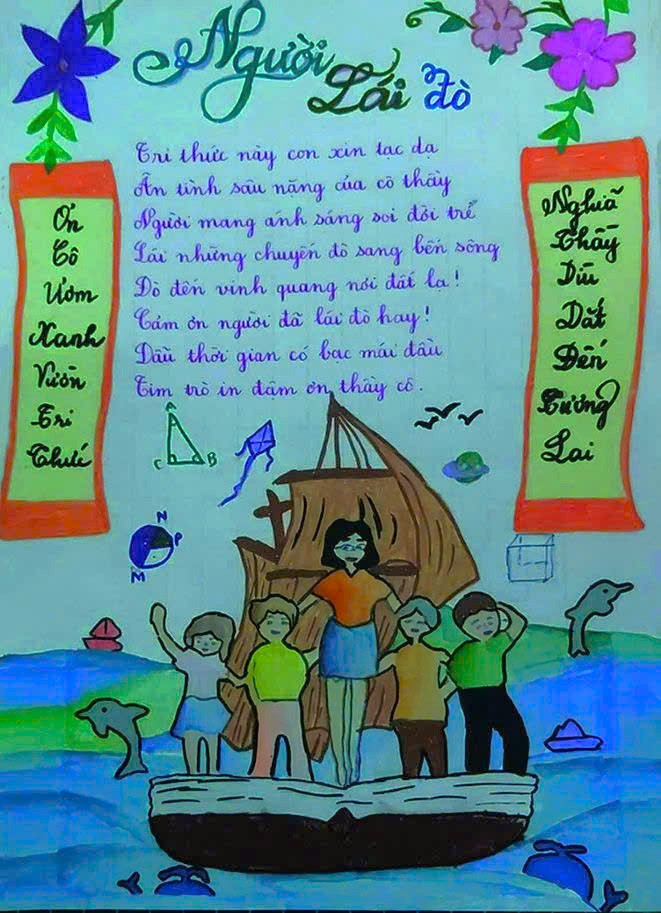 Người
Lái đò
Tri thức này con xin tạc dạ
Ân tình sâu nặng của cô thầy
Người mang ánh sáng soi đời trẻ
Lái những chuyến đò sang bến sông
Đò đến vinh quang nơi đất lạ!
Cảm ơn người đã lái đò hay!
Dẫu thời gian có bạc mái đầu
Tim trò in đậm ơn thầy cô.
Ơn
Cô
Ươm
Xanh
Vườn
Tri
Thức
Nghĩa
Thầy
Dìu
Dắt
Đến
Tương
Lai
A
C B
N
P
M